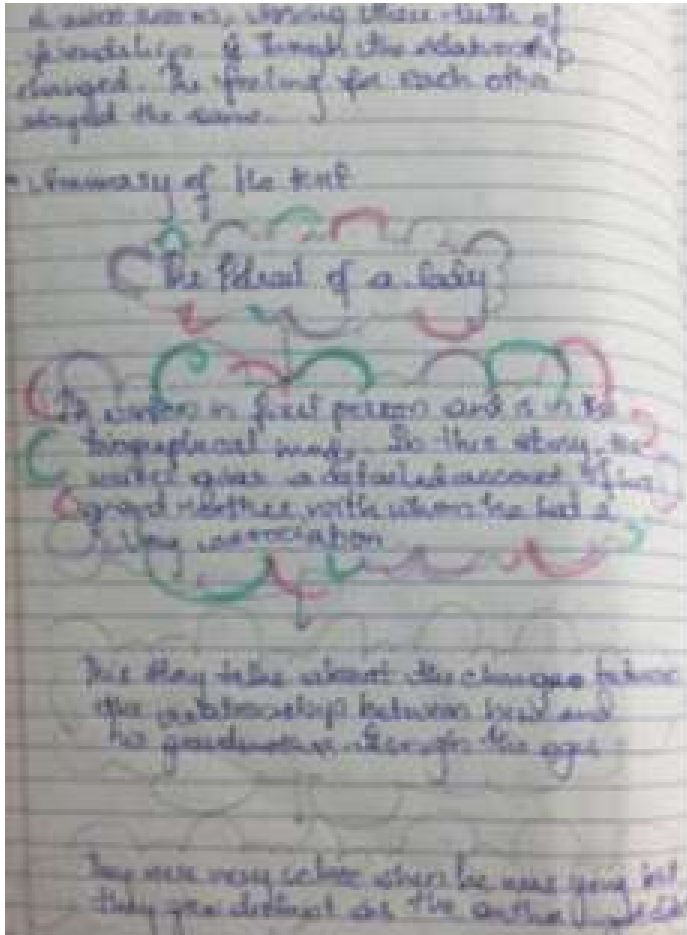 friendships
changed. The feeling for each other
stayed the same.
Summary of the text
The Potrait of a lady
written in first person and is in the
biographical mode. In this story, the
writer gives a detailed account of his
grand mother with whom he had a
long association
This story talks about the changes
the relationship between him and
his grandmother through the ages
They were very close when he was young but
they distant as the author